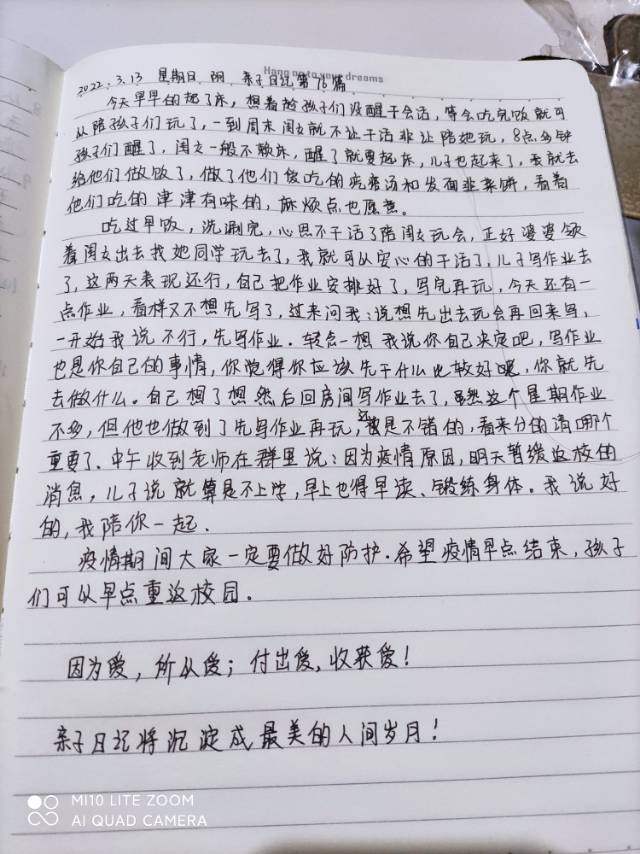 Hang on to your dreams
2022.3.13 星期日 阴 亲子日记第76篇
今天早早的起了床，想着趁孩子们没醒干会活，等会吃完饭就可
以陪孩子们玩了，一到周末闺女就不让干活非让陪她玩，8点多钟
孩子们醒了，闺女一般不赖床，醒了就要起床，儿子也起来了，我就去
给他们做饭了，做了他们爱吃的疙瘩汤和发面韭菜饼，看着
他们吃的津津有味的，麻烦点也愿意。
吃过早饭，洗涮完，心思不干活了陪闺女玩会，正好婆婆领
着闺女出去找她同学玩去了，我就可以安心的干活了，儿子写作业去
了，这两天表现还行，自己把作业安排好了，写完再玩，今天还有一
点作业，看样又不想先写了，过来问我：说想先出去玩会再回来写，
一开始我说不行，先写作业．转念一想我说你自己决定吧，写作业
也是你自己的事情，你觉得你应该先干什么比较好呢，你就先
去做什么。自己想了想然后回房间写作业去了，虽然这个星期作业
不多，但他也做到了先写作业再玩，还是不错的，看来分的清哪个
重要了、中午收到老师在群里说：因为疫情原因，明天暂缓返校的
消息，儿子说就算是不上学，早上也得早读、锻练身体。我说好
的，我陪你一起．
疫情期间大家一定要做好防护．希望疫情早点结束，孩子
们可以早点重返校园．
因为爱，所以爱；付出爱，收获爱！
亲子日记将沉淀成最美的人间岁月！
MI 10 LITE ZOOM
AI QUAD CAMERA